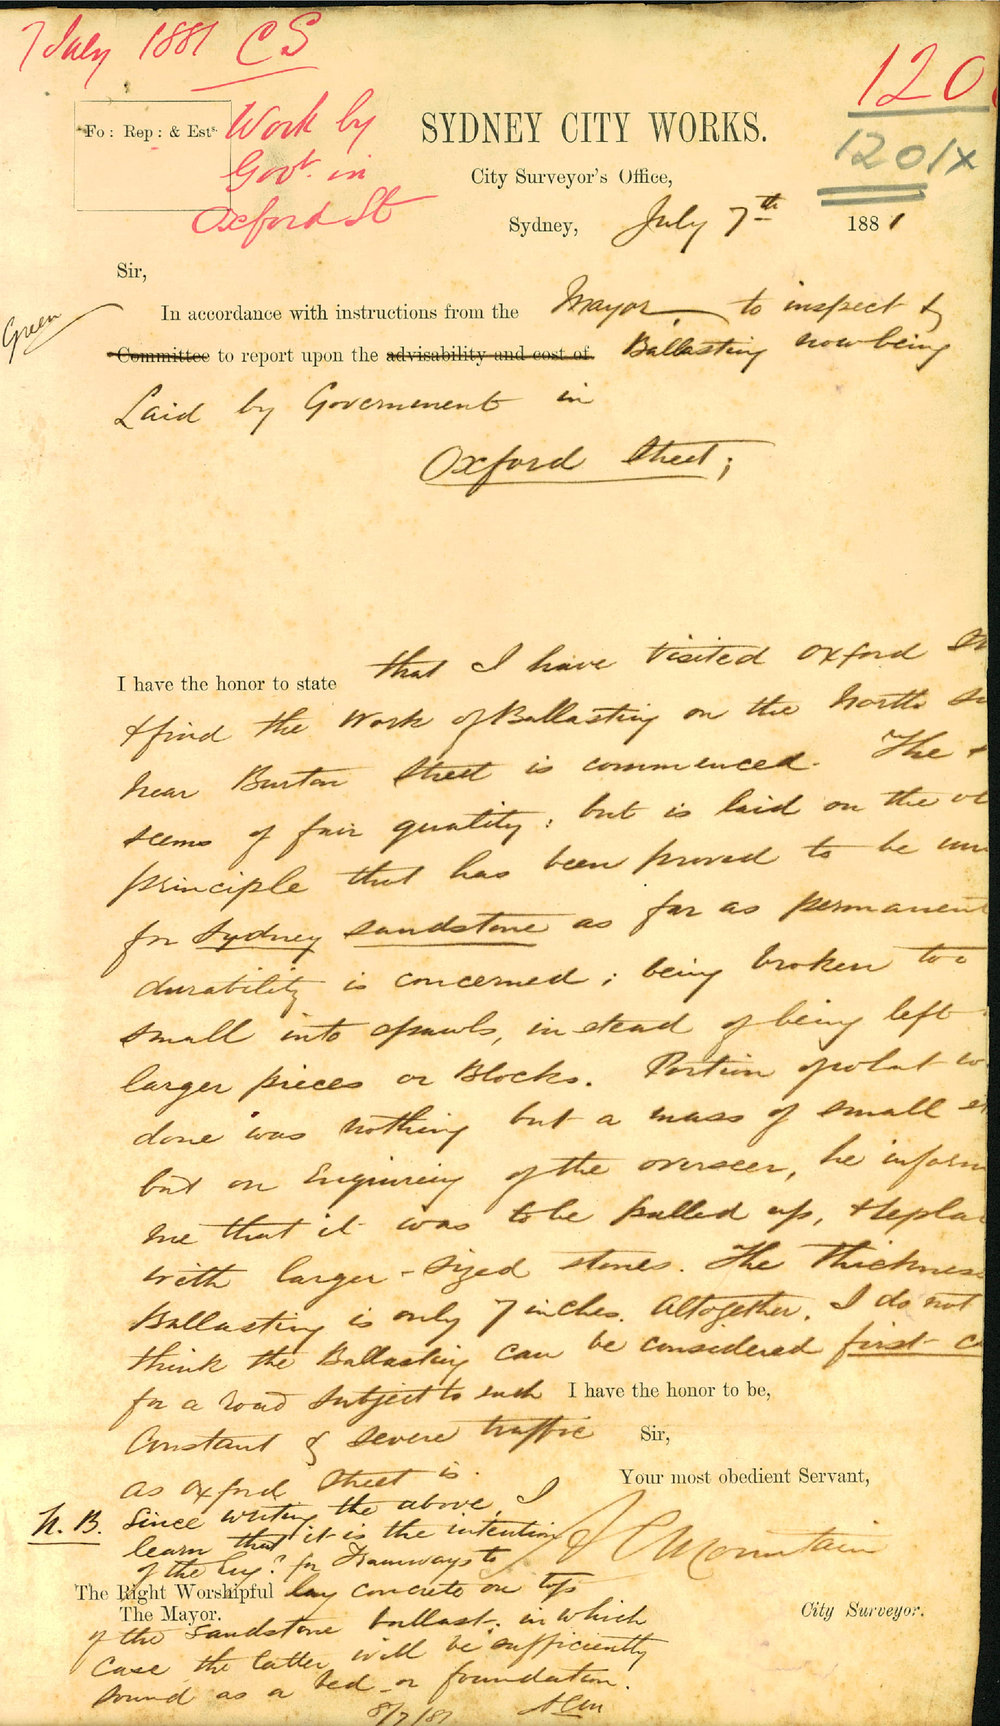 7 July 1881 CS
120
1201X
Fo: Rep: & Ests.
Work by
Govt. in
Oxford St
SYDNEY CITY WORKS.
City Surveyor's Office,
Sydney, July 7th 1881
Sir,
Green
In accordance with instructions from the Mayor, to inspect &
Committee to report upon the advisability and cost of Ballasting now being
Laid by Government in
Oxford Street;
I have the honor to state that I have visited Oxford
& find the Work of Ballasting on the North
near Burton Street is commenced. The
seems of fair quality; but is laid on the
principle that has been proved to be
for Sydney sandstone as far as permanent
durability is concerned; being broken too
small into spawls, instead of being left
larger pieces or Blocks. Portion of what
done was nothing but a mass of small
but on Enquiring of the overseer, he inform
me that it was to be pulled up, & repla
with larger-sized stones. The thickness
Ballasting is only 7 inches altogether. I do not
think the Ballasting can be considered first
for a road subject to such
I have the honor to be,
Constant & severe traffic
Sir,
as Oxford Street is.
Your most obedient Servant,
N.B. Since writing the above, I
learn that it is the intention
A C Mountain
of the for Tramways to
The Right Worshipful lay concrete on top
The Mayor.
City Surveyor.
of the sandstone ballast; in which
case the latter will be sufficiently
sound as a bed or foundation.
8/7/81 ACM